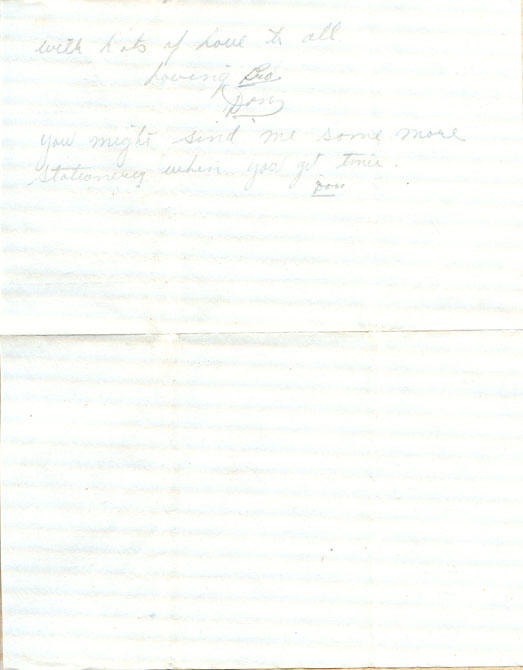 with lots of love to all
Loving Bro.
Don
You might send me some more
stationery when you get time.
Don